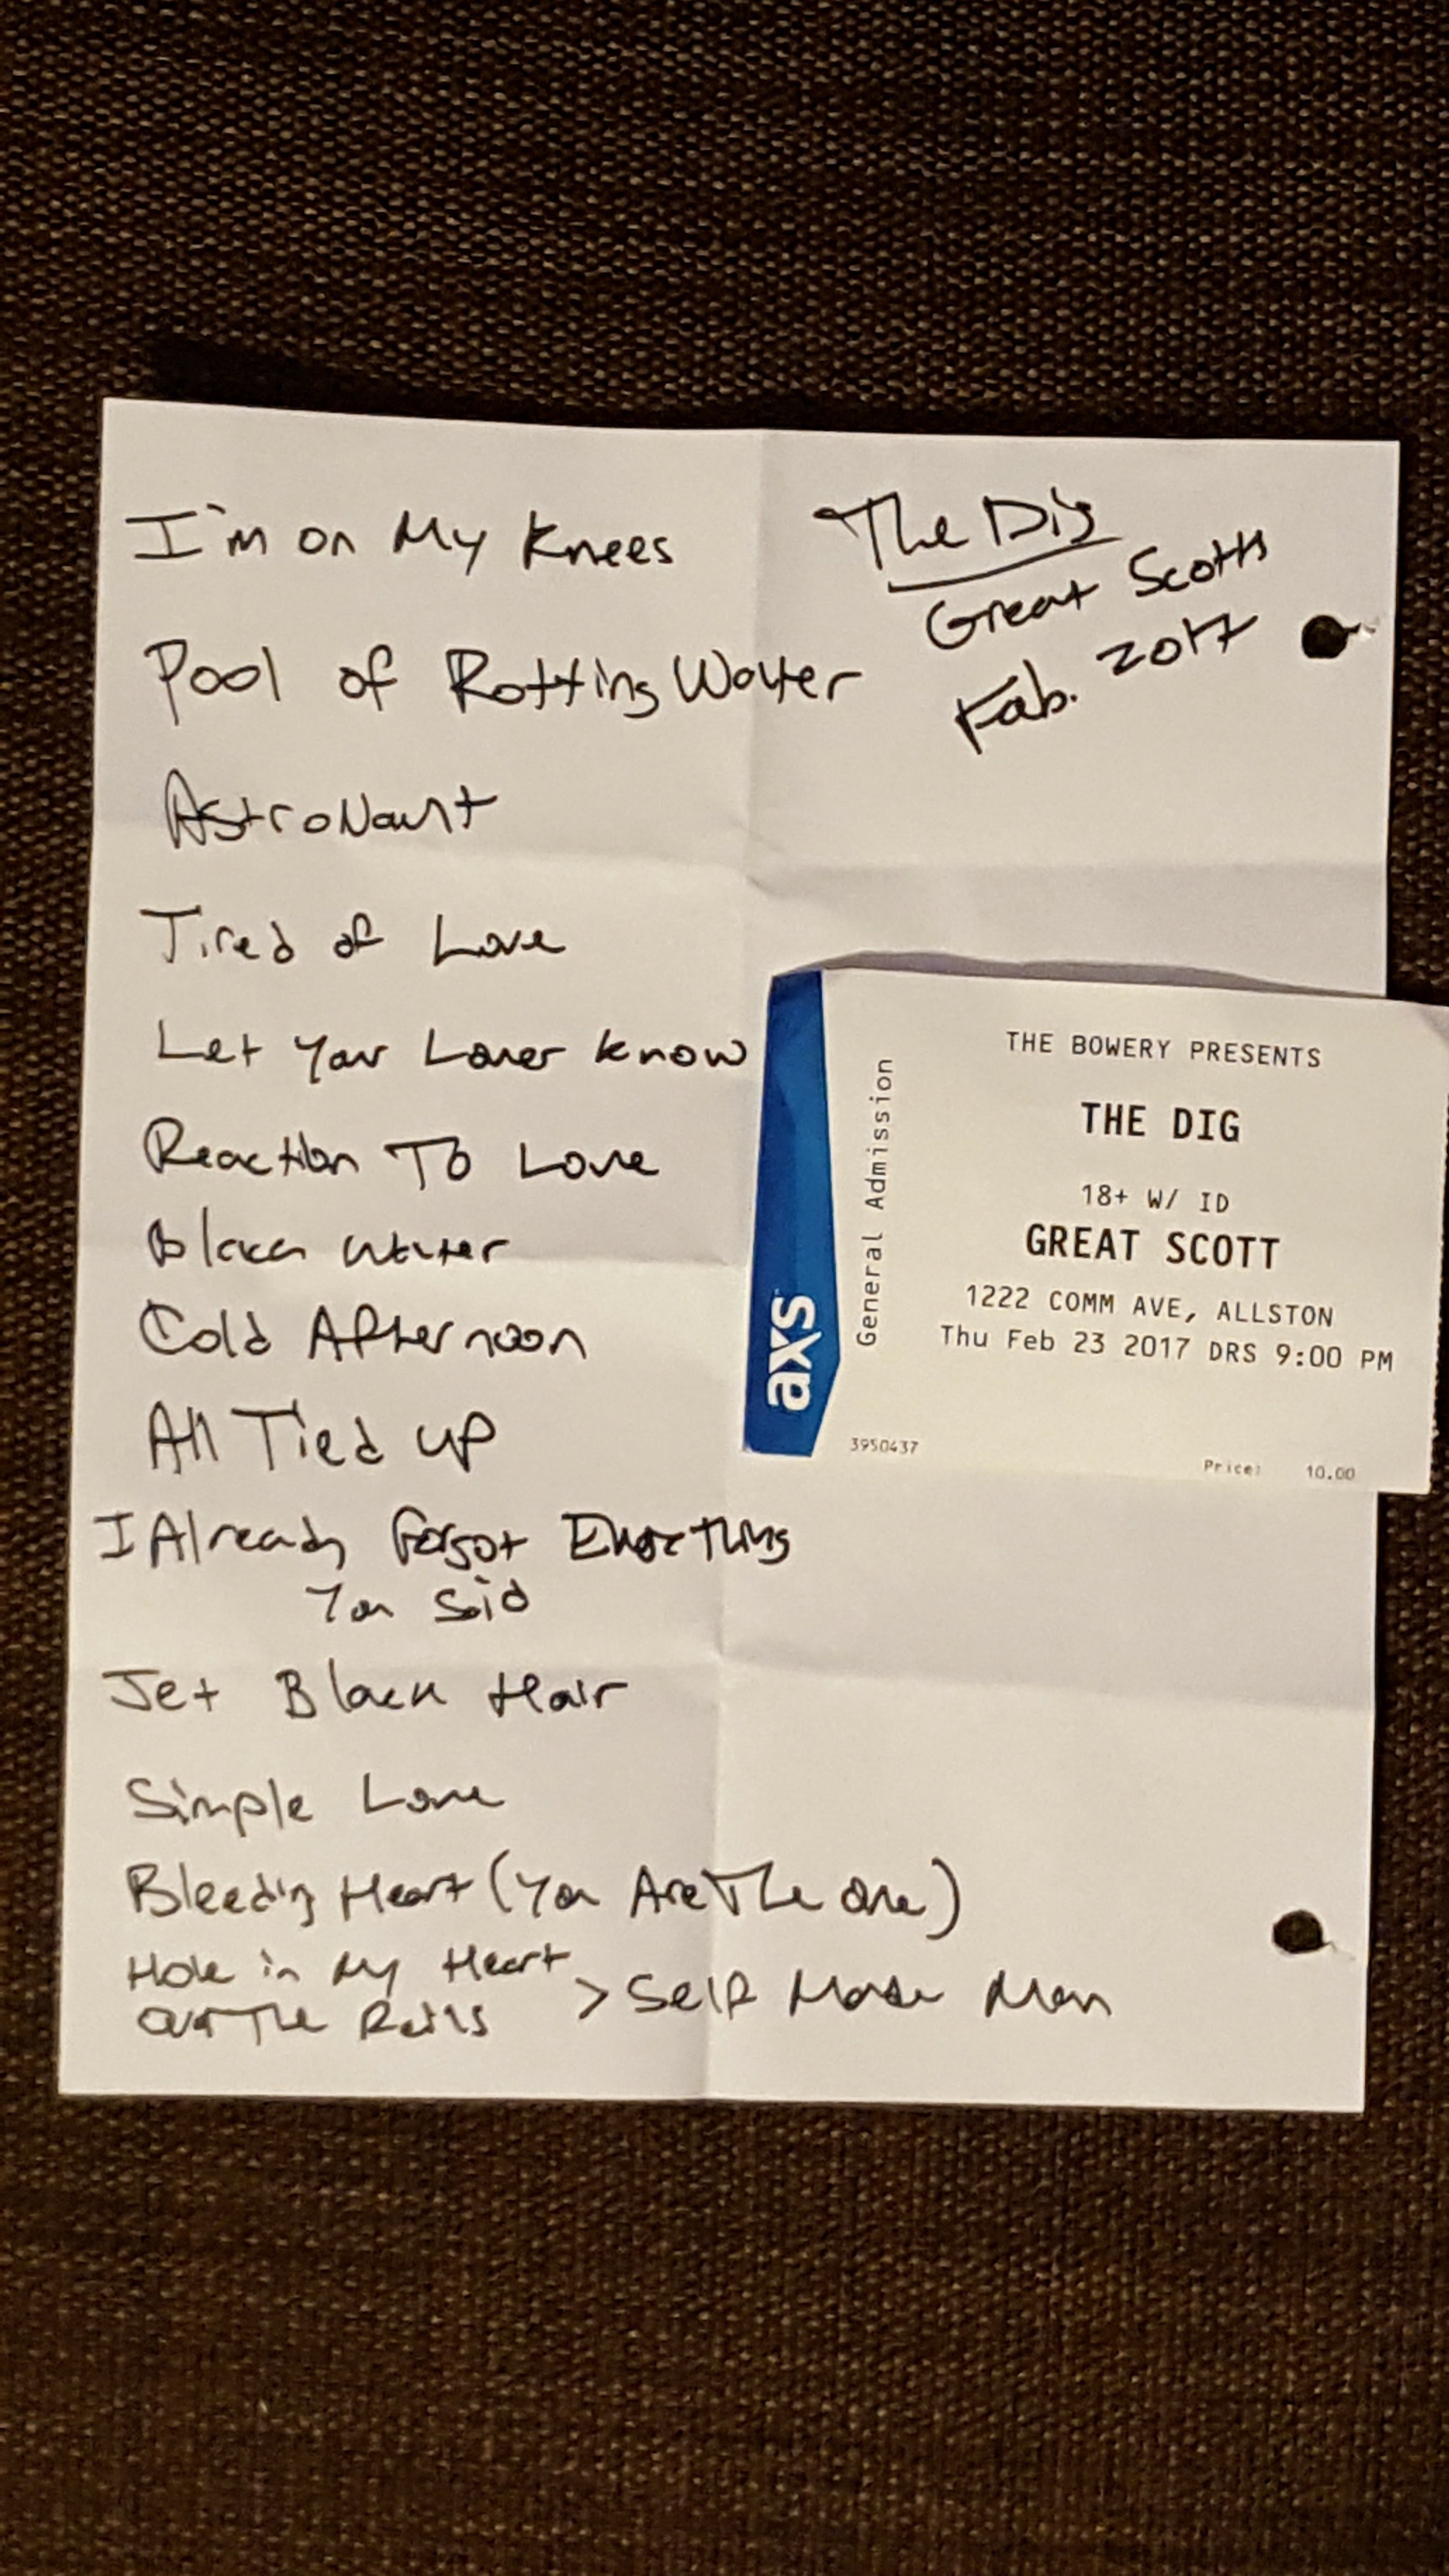 I'm on My Knees
The Dig
Great Scotts
Feb. 2017
Pool of Rotting Water
Astronaut
Tired of Love
Let Your Lover Know
Reaction To Love
Black Water
Cold Afternoon
All Tied up
I Already Forgot Everything
You Said
Jet Black Hair
Simple Love
Bleeding Heart (You Are The One)
Hole in My Heart
Out The Rails
> Self Made Man
THE BOWERY PRESENTS
THE DIG
18+ W/ ID
GREAT SCOTT
1222 COMM AVE, ALLSTON
Thu Feb 23 2017 DRS 9:00 PM
General Admission
axs
3950437
Price: 10.00